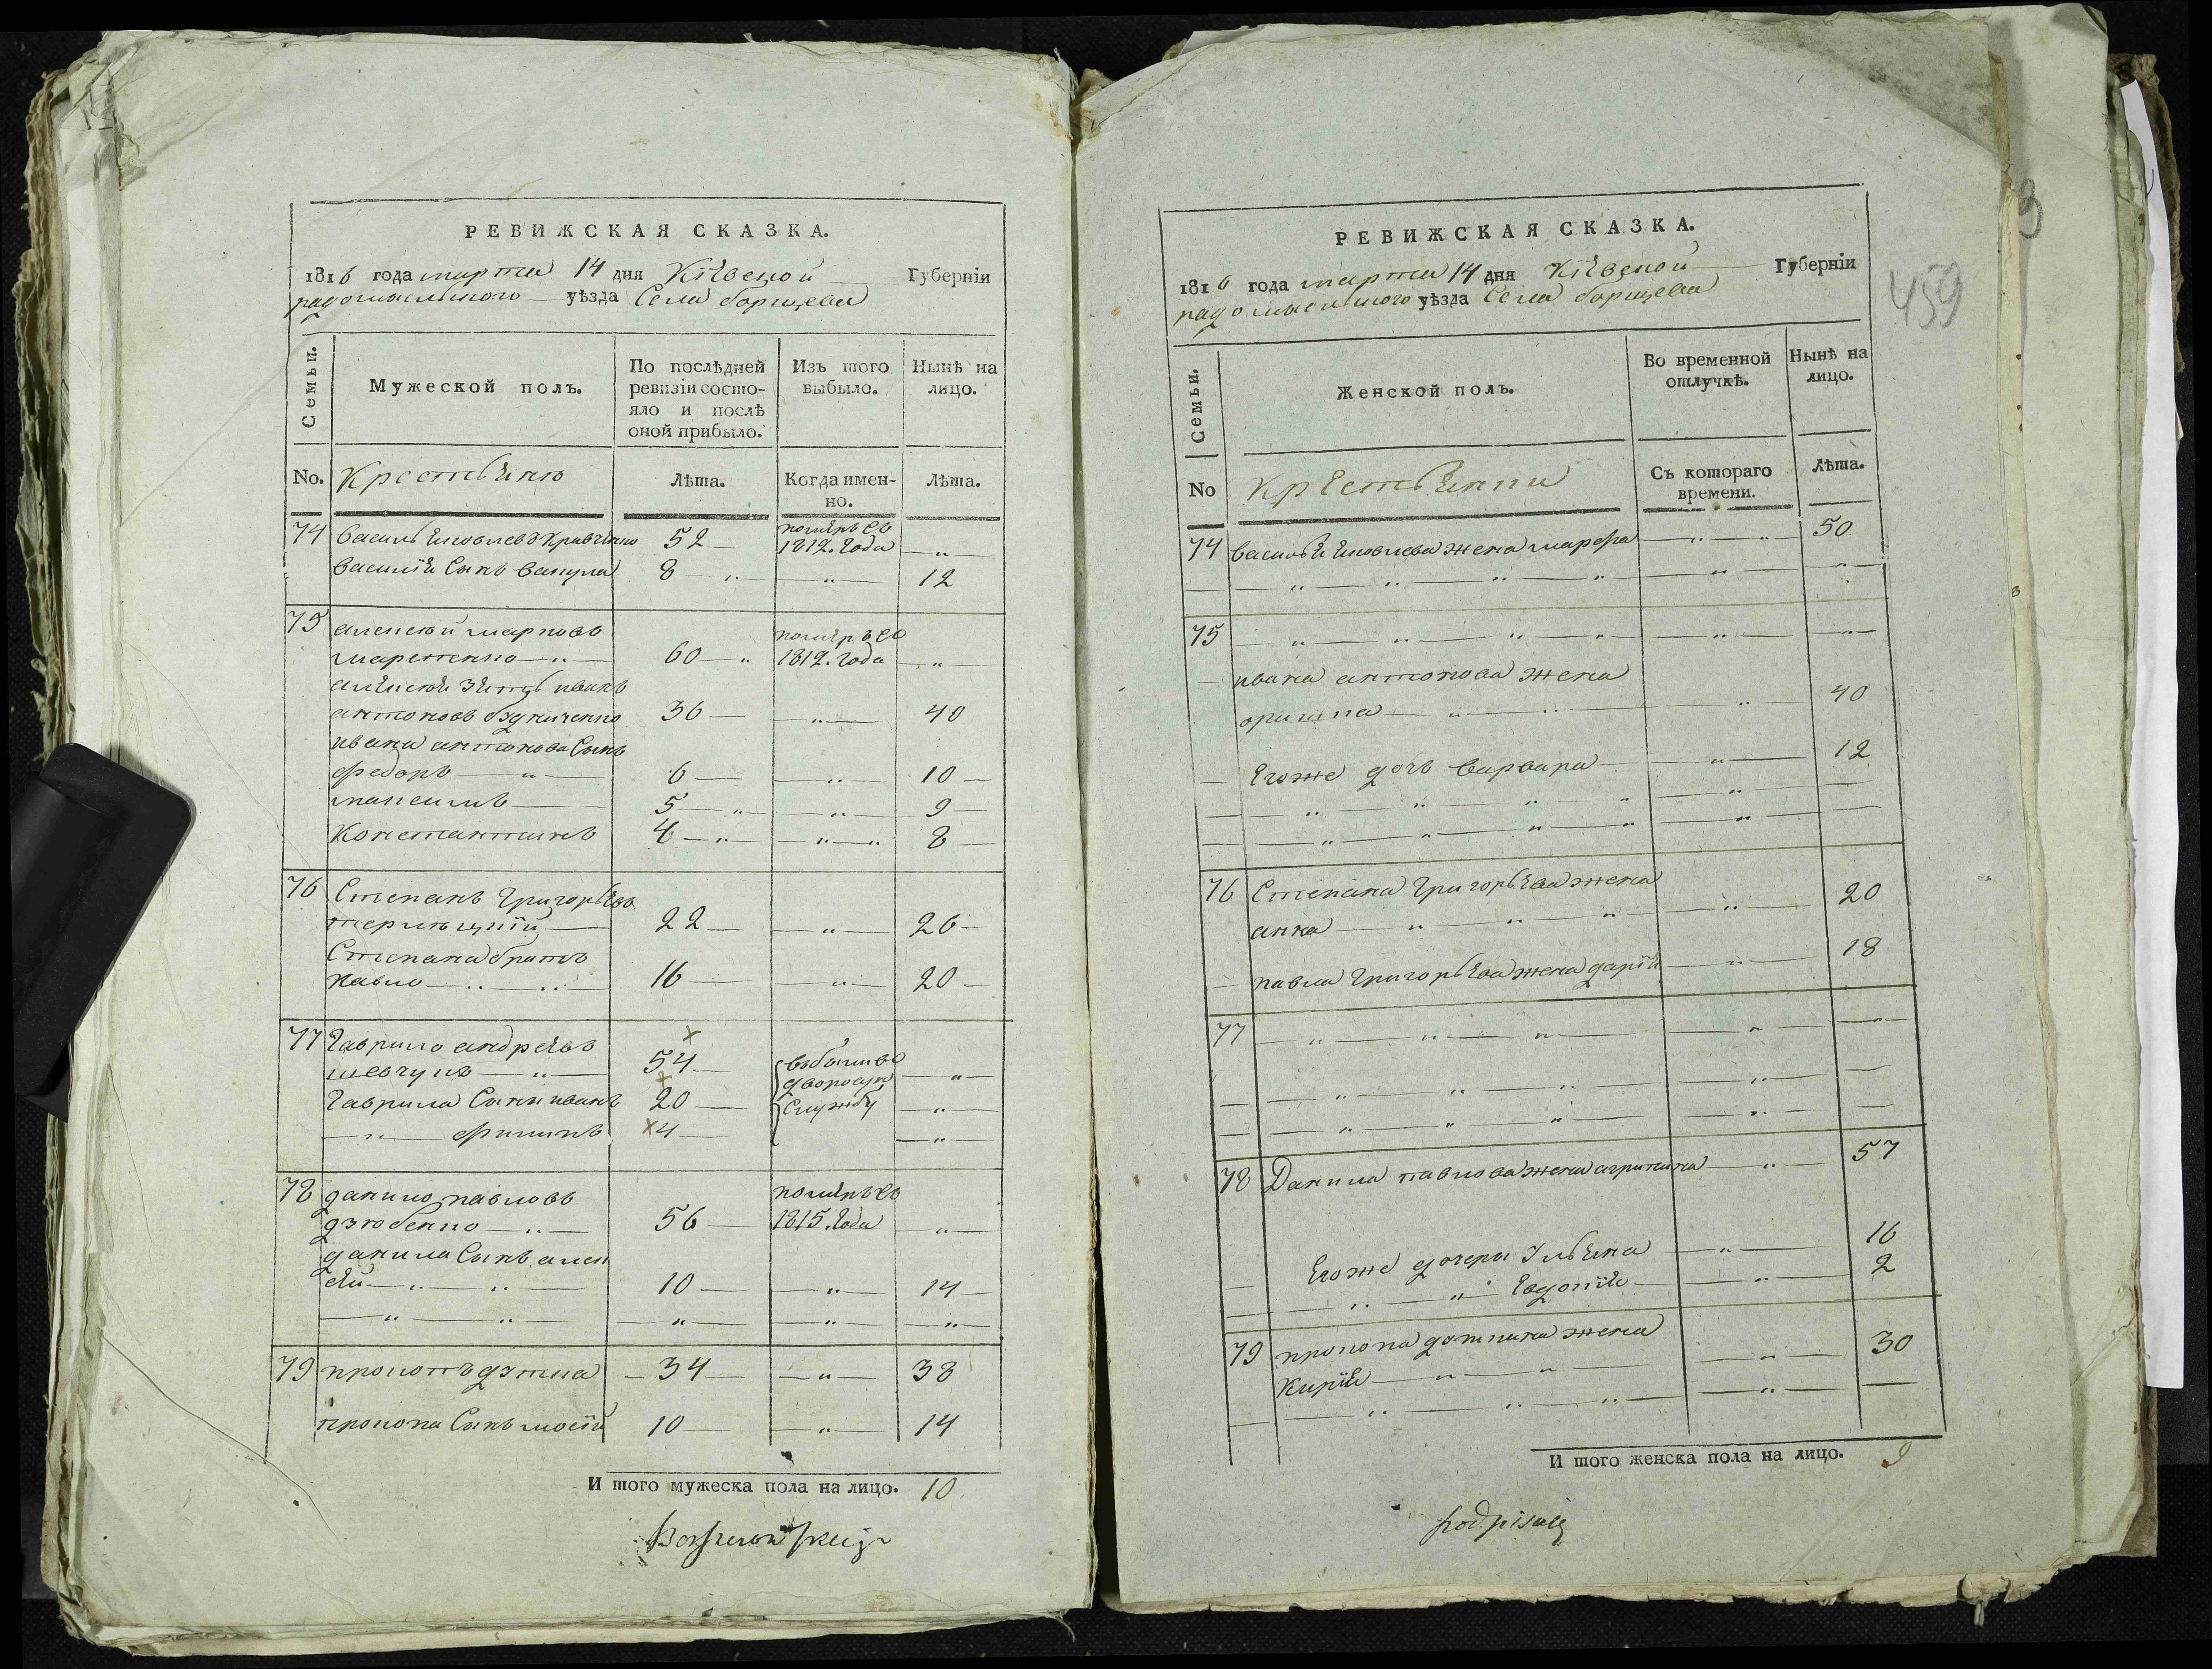 РЕВИЖСКАЯ СКАЗКА.
1816 года марта 14 дня Кіевской Губерніи
радомысльского уѣзда Села борщева
Семьи.
Мужеской полъ.
По послѣдней ревизіи состояло и послѣ оной прибыло.
Изъ того выбыло.
Нынѣ на лицо.
No.
Лѣта.
Когда именно.
Лѣта.
74 василь яковлевъ кравченко 52 померъ въ 1812. года „
василія Сынъ вакула 8 „ „ 12
75 алексей марковъ
марженко „ 60 „ померъ въ 1812. года „
алексея зять иванъ
антоновъ будниченко 36 „ 40
ивана антонова Сынъ
федоръ „ 6 „ 10
максимъ 5 „ „ 9
Константинъ 4 „ „ „ 8
76 Степанъ григорьевъ
22 „ 26
Степана братъ
павло „ „ 16 „ 20
77 гаврило андреевъ
шевчукъ „ 54 „
гаврила Сыны иванъ 20 „
„ филипъ 4 „
службу
78 данило павловъ
дзюбенко „ 56 померъ въ 1815. года „
данила Сынъ алек
ей „ „ 10 „ 14
„ „ „ „ „
79 прокопъ дэтка 34 „ 38
прокопа Сынъ мосій 10 „ 14
И того мужеска пола на лицо. 10
РЕВИЖСКАЯ СКАЗКА.
1816 года марта 14 дня Кіевской Губерніи
радомысльского уѣзда Села борщева
459
Семьи.
Женской полъ.
Во временной отлучкѣ.
Нынѣ на лицо.
No
Съ котораго времени.
Лѣта.
74 василья яковлева жена марфа „ „ 50
„ „ „ „ „ „
75 „ „ „ „ „ „
ивана антонова жена
оришка „ „ „ 40
Егоже дочь варвара „ 12
„ „ „ „ „
„ „ „ „ „
76 Степана григорьева жена
анна „ „ „ „ 20
павла григорьева жена дарія „ 18
77 „ „ „ „ „
„ „ „ „
„ „ „ „
78 Данила павлова жена агрипина „ 57
Егоже дочеры Ульяна „ 16
„ „ Евдокія „ 2
79 прокопа дэткина жена
Кирія „ „ „ 30
„ „ „ „
И того женска пола на лицо. 9
podpisaię